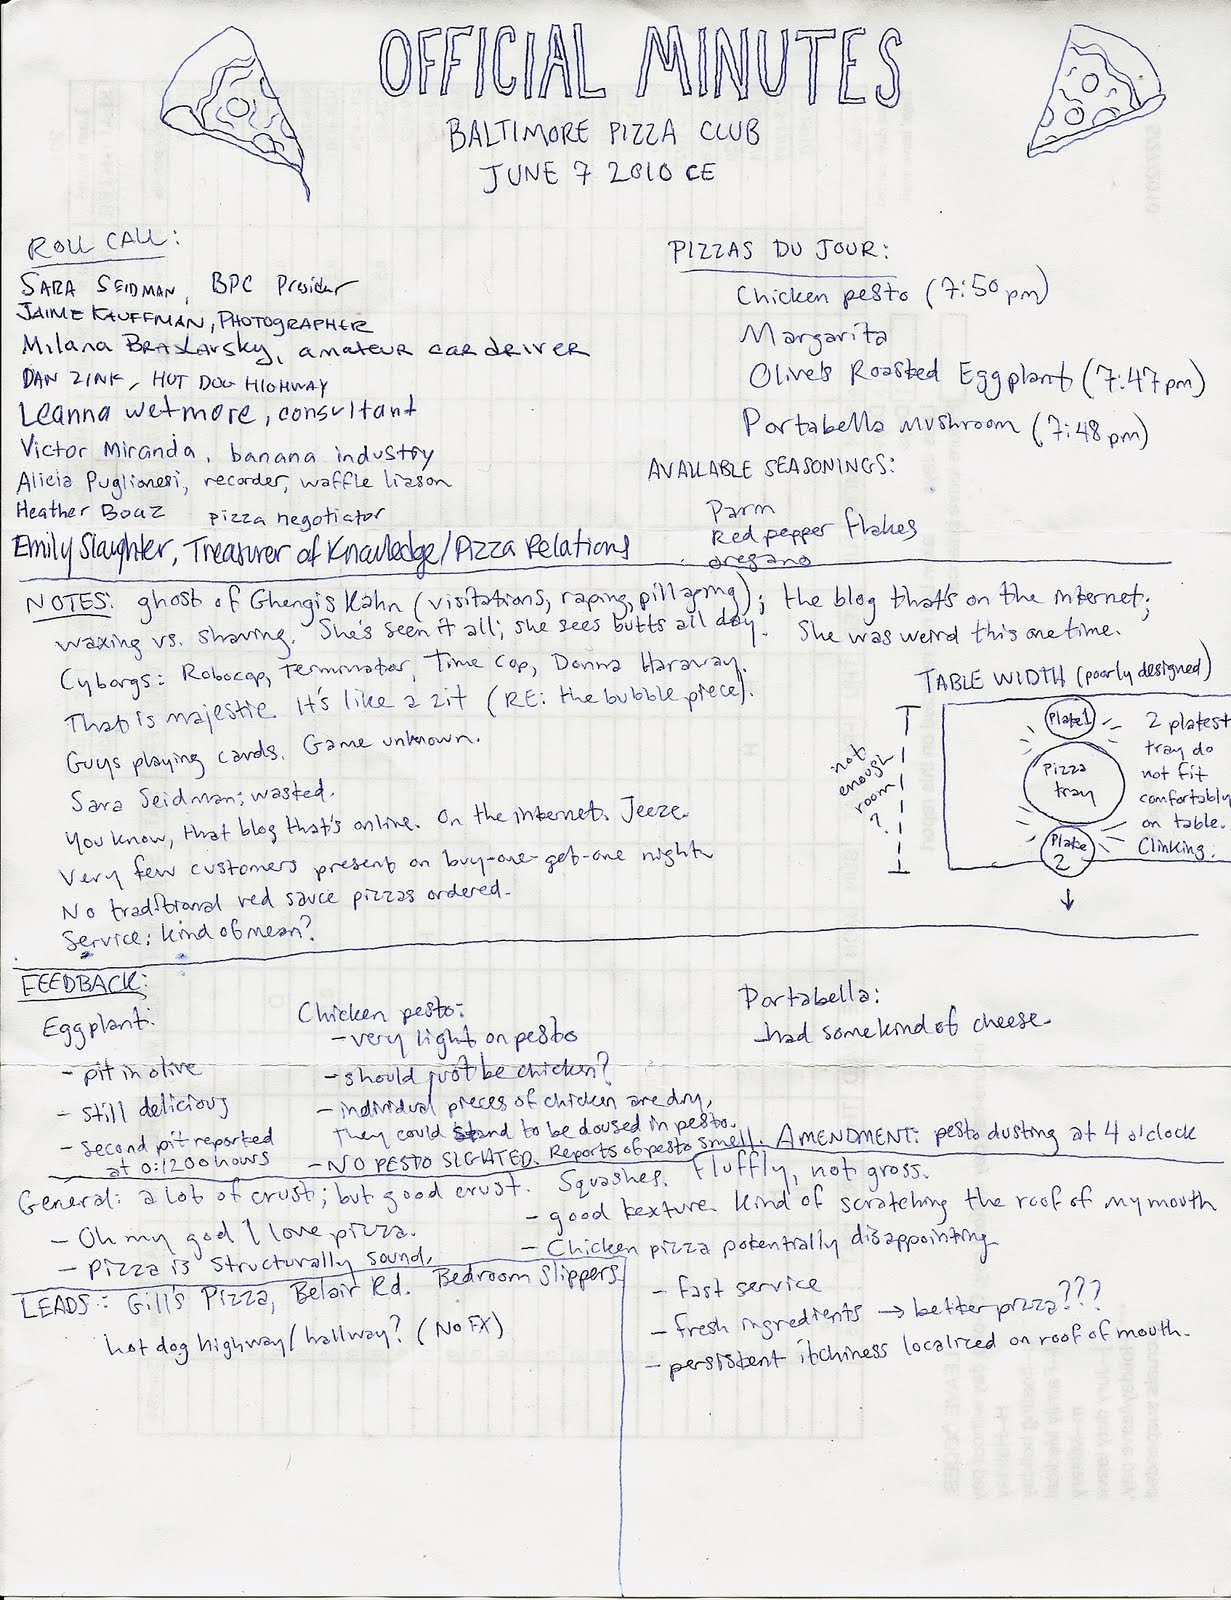 OFFICIAL MINUTES
BALTIMORE PIZZA CLUB
JUNE 7 2010 CE
ROLL CALL:
SARA SEIDMAN, BPC President
JAIME KAUFFMAN, PHOTOGRAPHER
Milana Braslavsky, amateur car driver
DAN ZINK, HOT DOG HIGHWAY
Leanna Wetmore, consultant
Victor Miranda, banana industry
Alicia Puglionesi, recorder, waffle liason
Heather Boaz pizza negotiator
Emily Slaughter, Treasurer of Knowledge/Pizza Relations
PIZZAS DU JOUR:
Chicken pesto (7:50 pm)
Margarita
Olives Roasted Eggplant (7:47 pm)
Portabella Mushroom (7:48 pm)
AVAILABLE SEASONINGS:
Parm
Red pepper flakes
oregano
NOTES: ghost of Ghengis Kahn (visitations, raping, pillaging); the blog that's on the internet;
waxing vs. shaving. She's seen it all; she sees butts all day. She was weird this one time.
Cyborgs: Robocop, Terminator, Time Cop, Donna Haraway.
That is majestic. It's like a zit (RE: the bubble piece).
Guys playing cards. Game unknown.
Sara Seidman: wasted.
You know, that blog that's online. On the internet. Jeeze.
Very few customers present on buy-one-get-one night
No traditional red sauce pizzas ordered.
Service: kind of mean?
TABLE WIDTH (poorly designed)
not
enough
room
?
Plate 1
Pizza
tray
Plate
2
2 plates +
tray do
not fit
comfortably
on table.
Clinking.
FEEDBACK:
Eggplant:
- pit in olive
- still delicious
- second pit reported
at 0:1200 hours
Chicken pesto:
- very light on pesto
- should just be chicken?
- individual pieces of chicken are dry,
they could stand to be doused in pesto.
- NO PESTO SIGHTED. Reports of pesto smell. AMENDMENT: pesto dusting at 4 o'clock
Portabella:
- had some kind of cheese.
General: a lot of crust; but good crust. Squashes. Fluffly, not gross.
- Oh my god I love pizza.
- Pizza is structurally sound.
- good texture kind of scratching the roof of my mouth
- Chicken pizza potentially disappointing
- fast service
- fresh ingredients → better pizza???
- persistent itchiness localized on roof of mouth.
LEADS: Gill's Pizza, Belair Rd. Bedroom slippers
hot dog highway/hallway? (No FX)